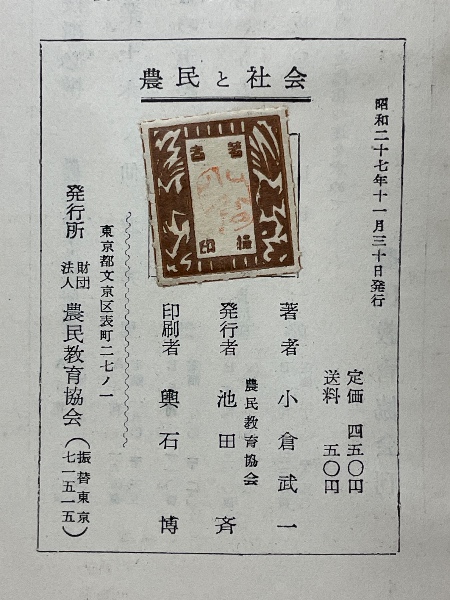 農民と社会
昭和二十七年十一月三十日発行
定価 四五〇円
送料 五〇円
著者 小倉武一
農民教育協会
発行者 池田斉
印刷者 輿石博
東京都文京区表町二七ノ一
発行所 財団法人 農民教育協会
(振替東京七一五一五)
著者
検印